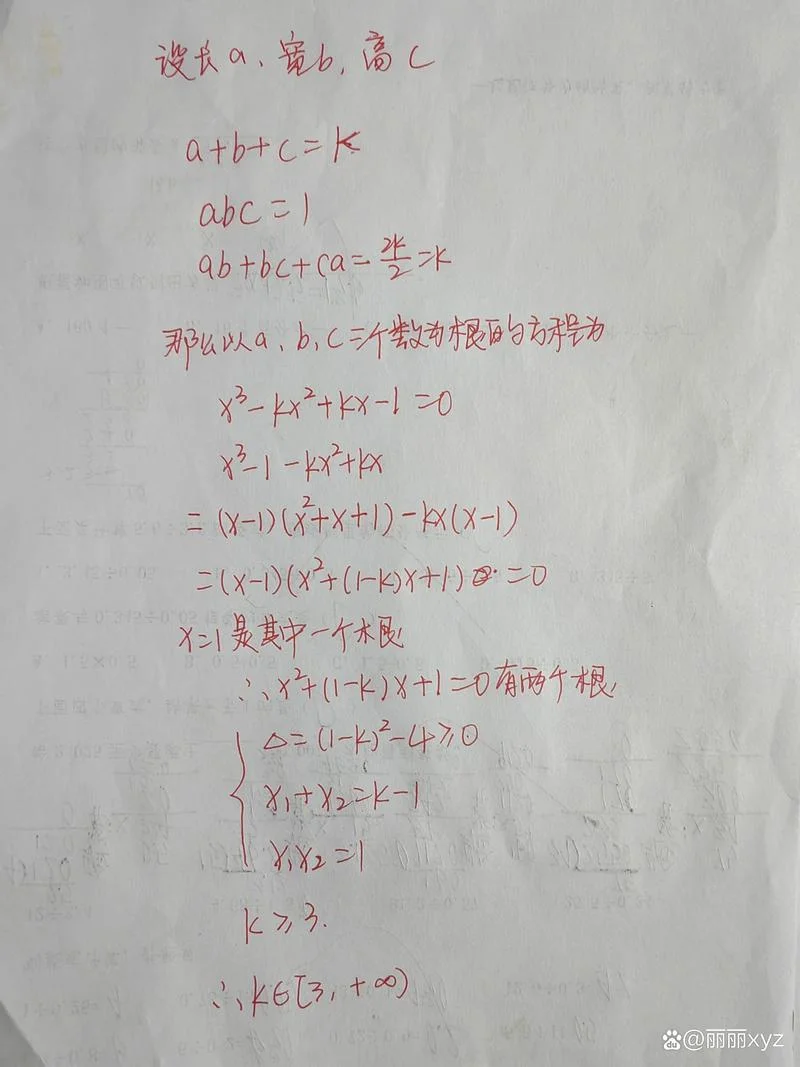 设长a、宽b,高c
a+b+c=k
abc=1
ab+bc+ca=2k/2=k
那么以a、b、c三个数为根的方程为
x³-kx²+kx-1=0
x³-1-kx²+kx
=(x-1)(x²+x+1)-kx(x-1)
=(x-1)(x²+(1-k)x+1)=0
x=1是其中一个根
∴x²+(1-k)x+1=0有两个根
△=(1-k)²-4≥0
x₁+x₂=k-1
x₁x₂=1
k≥3.
∴k∈[3,+∞)
@丽丽xyz